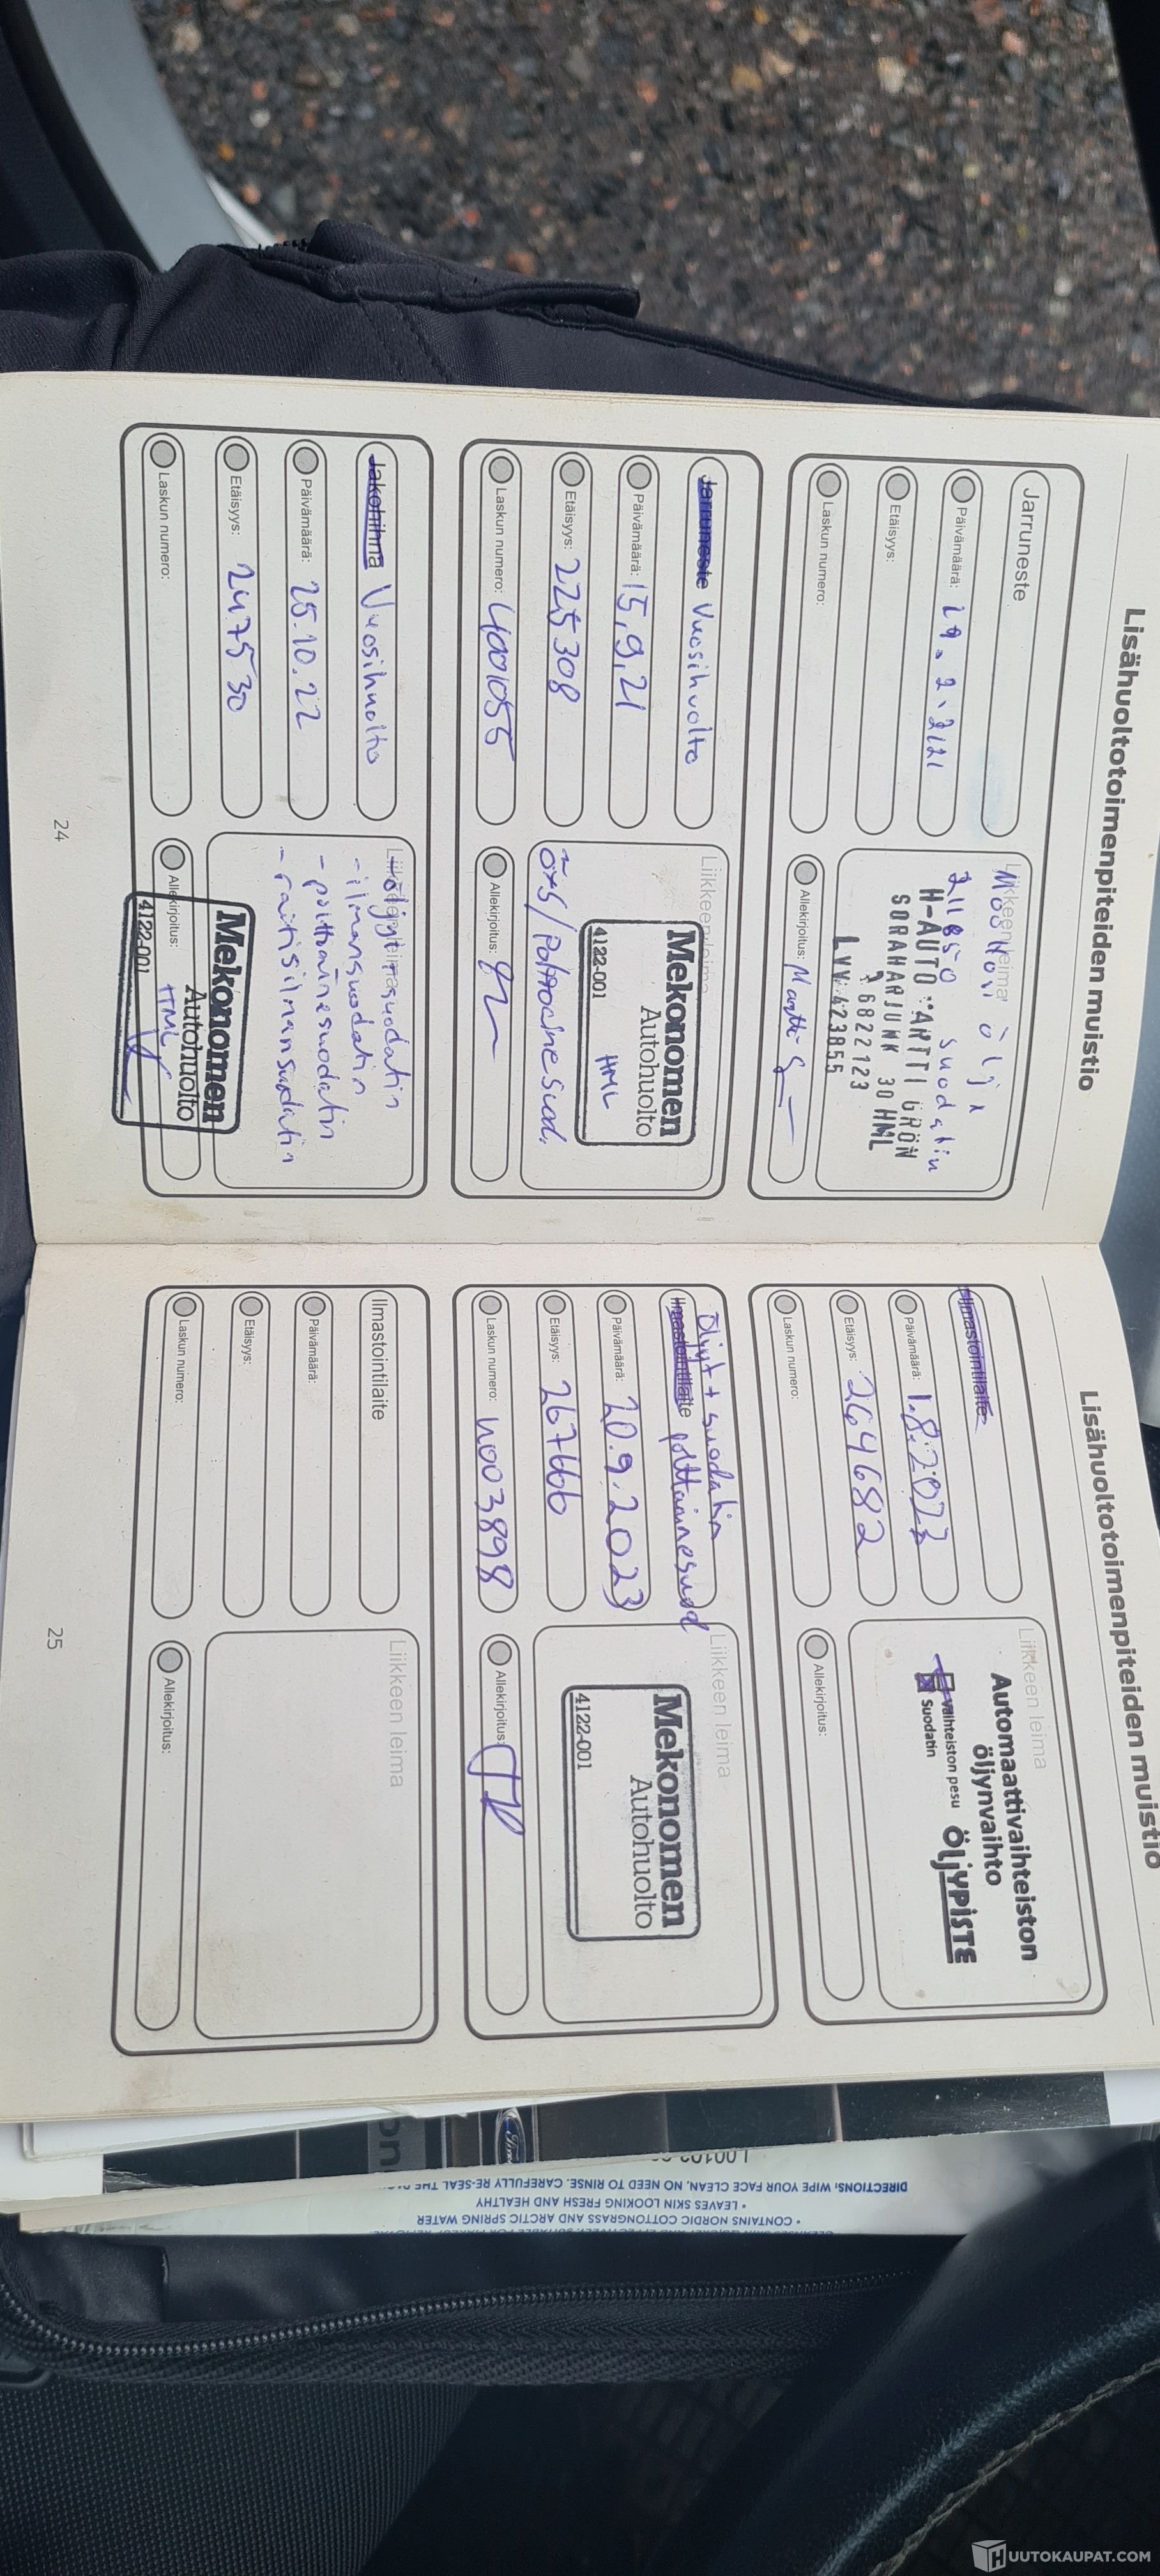 Lisähuoltotoimenpiteiden muistio
Jarruneste
Päivämäärä: 19.2.2121
Etäisyys:
Laskun numero:
Liikkeen leima
Moottori öljy
211850 suodatin
H-AUTO ANTTI GRÖN
SORAHARJUNK 30 HML
6822123
LVV:423855
Allekirjoitus:
Jarruneste Vuosihuolto
Päivämäärä: 15.9.21
Etäisyys: 225308
Laskun numero: 4001055
Liikkeen leima
Mekonomen
Autohuolto
HML
4122-001
Ö+S/Polttoainesuod.
Allekirjoitus:
Jakohihna Vuosihuolto
Päivämäärä: 25.10.22
Etäisyys: 247530
Laskun numero:
Liikkeen leima
- öljyt + suodatin
- ilmansuodatin
- polttoainesuodatin
- raitisilmansuodatin
Mekonomen
Autohuolto
HML
Allekirjoitus:
4122-001
24
Lisähuoltotoimenpiteiden muistio
Ilmastointilaite
Päivämäärä: 1.8.2023
Etäisyys: 264682
Laskun numero:
Liikkeen leima
Automaattivaihteiston
öljynvaihto
Vaihteiston pesu
Suodatin
ÖLJYPISTE
Allekirjoitus:
Öljyt + suodatin
Ilmastointilaite polttoainesuod
Päivämäärä: 20.9.2023
Etäisyys: 267666
Laskun numero: 4003898
Liikkeen leima
Mekonomen
Autohuolto
4122-001
Allekirjoitus:
Ilmastointilaite
Päivämäärä:
Etäisyys:
Laskun numero:
Liikkeen leima
Allekirjoitus:
25
Ford
DIRECTIONS: WIPE YOUR FACE CLEAN, NO NEED TO RINSE. CAREFULLY RE-SEAL THE
• LEAVES SKIN LOOKING FRESH AND HEALTHY
• CONTAINS NORDIC COTTONGRASS AND ARCTIC SPRING WATER
HUUTOKAUPAT.COM